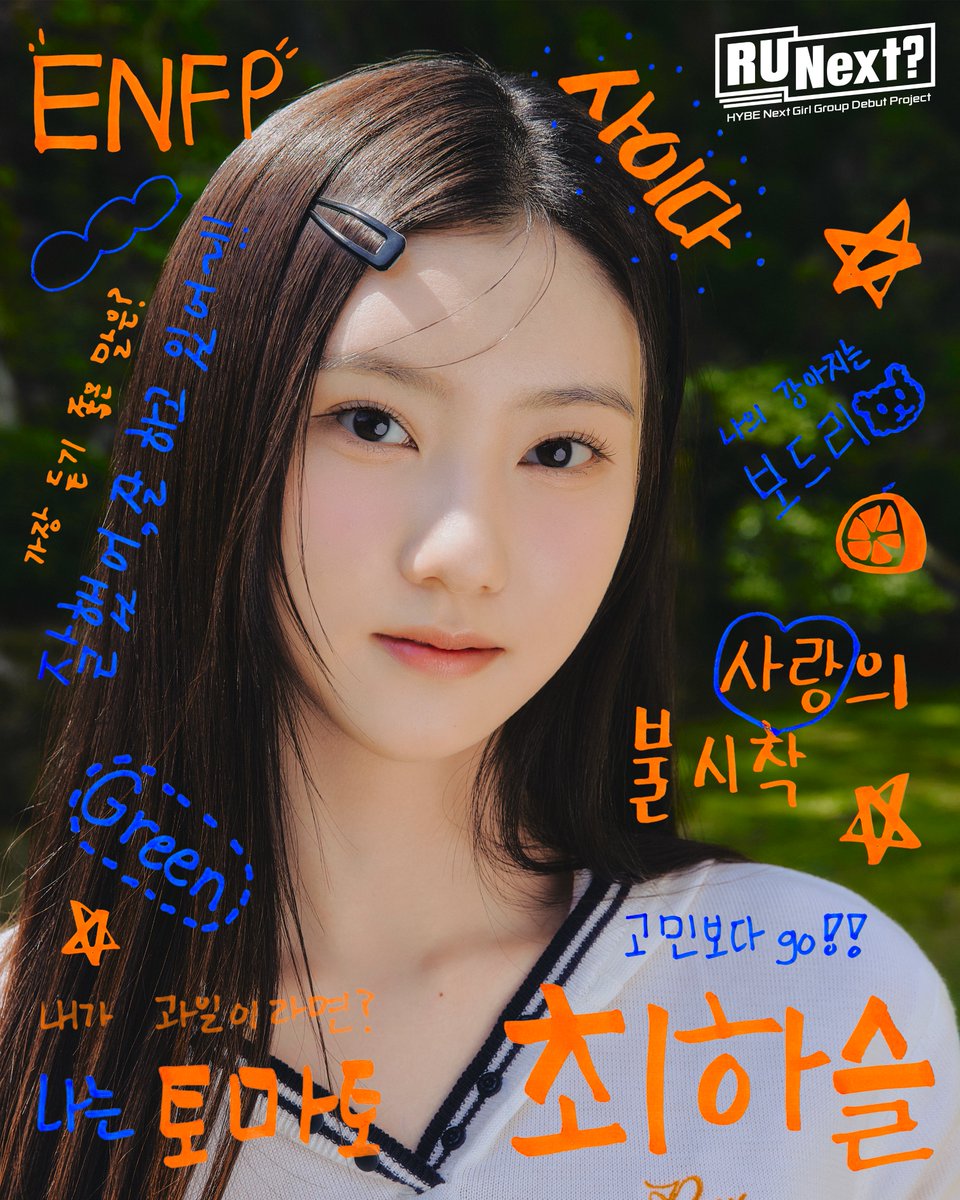 ENFP
사이다
RUNext?
HYBE Next Girl Group Debut Project
가장 듣기 좋은 말은?
잘했어, 잘 하고 있어~!
나의 강아지는
보드리
사랑의
불시착
Green
고민보다 go!!
내가 과일이라면?
나는 토마토
최하슬